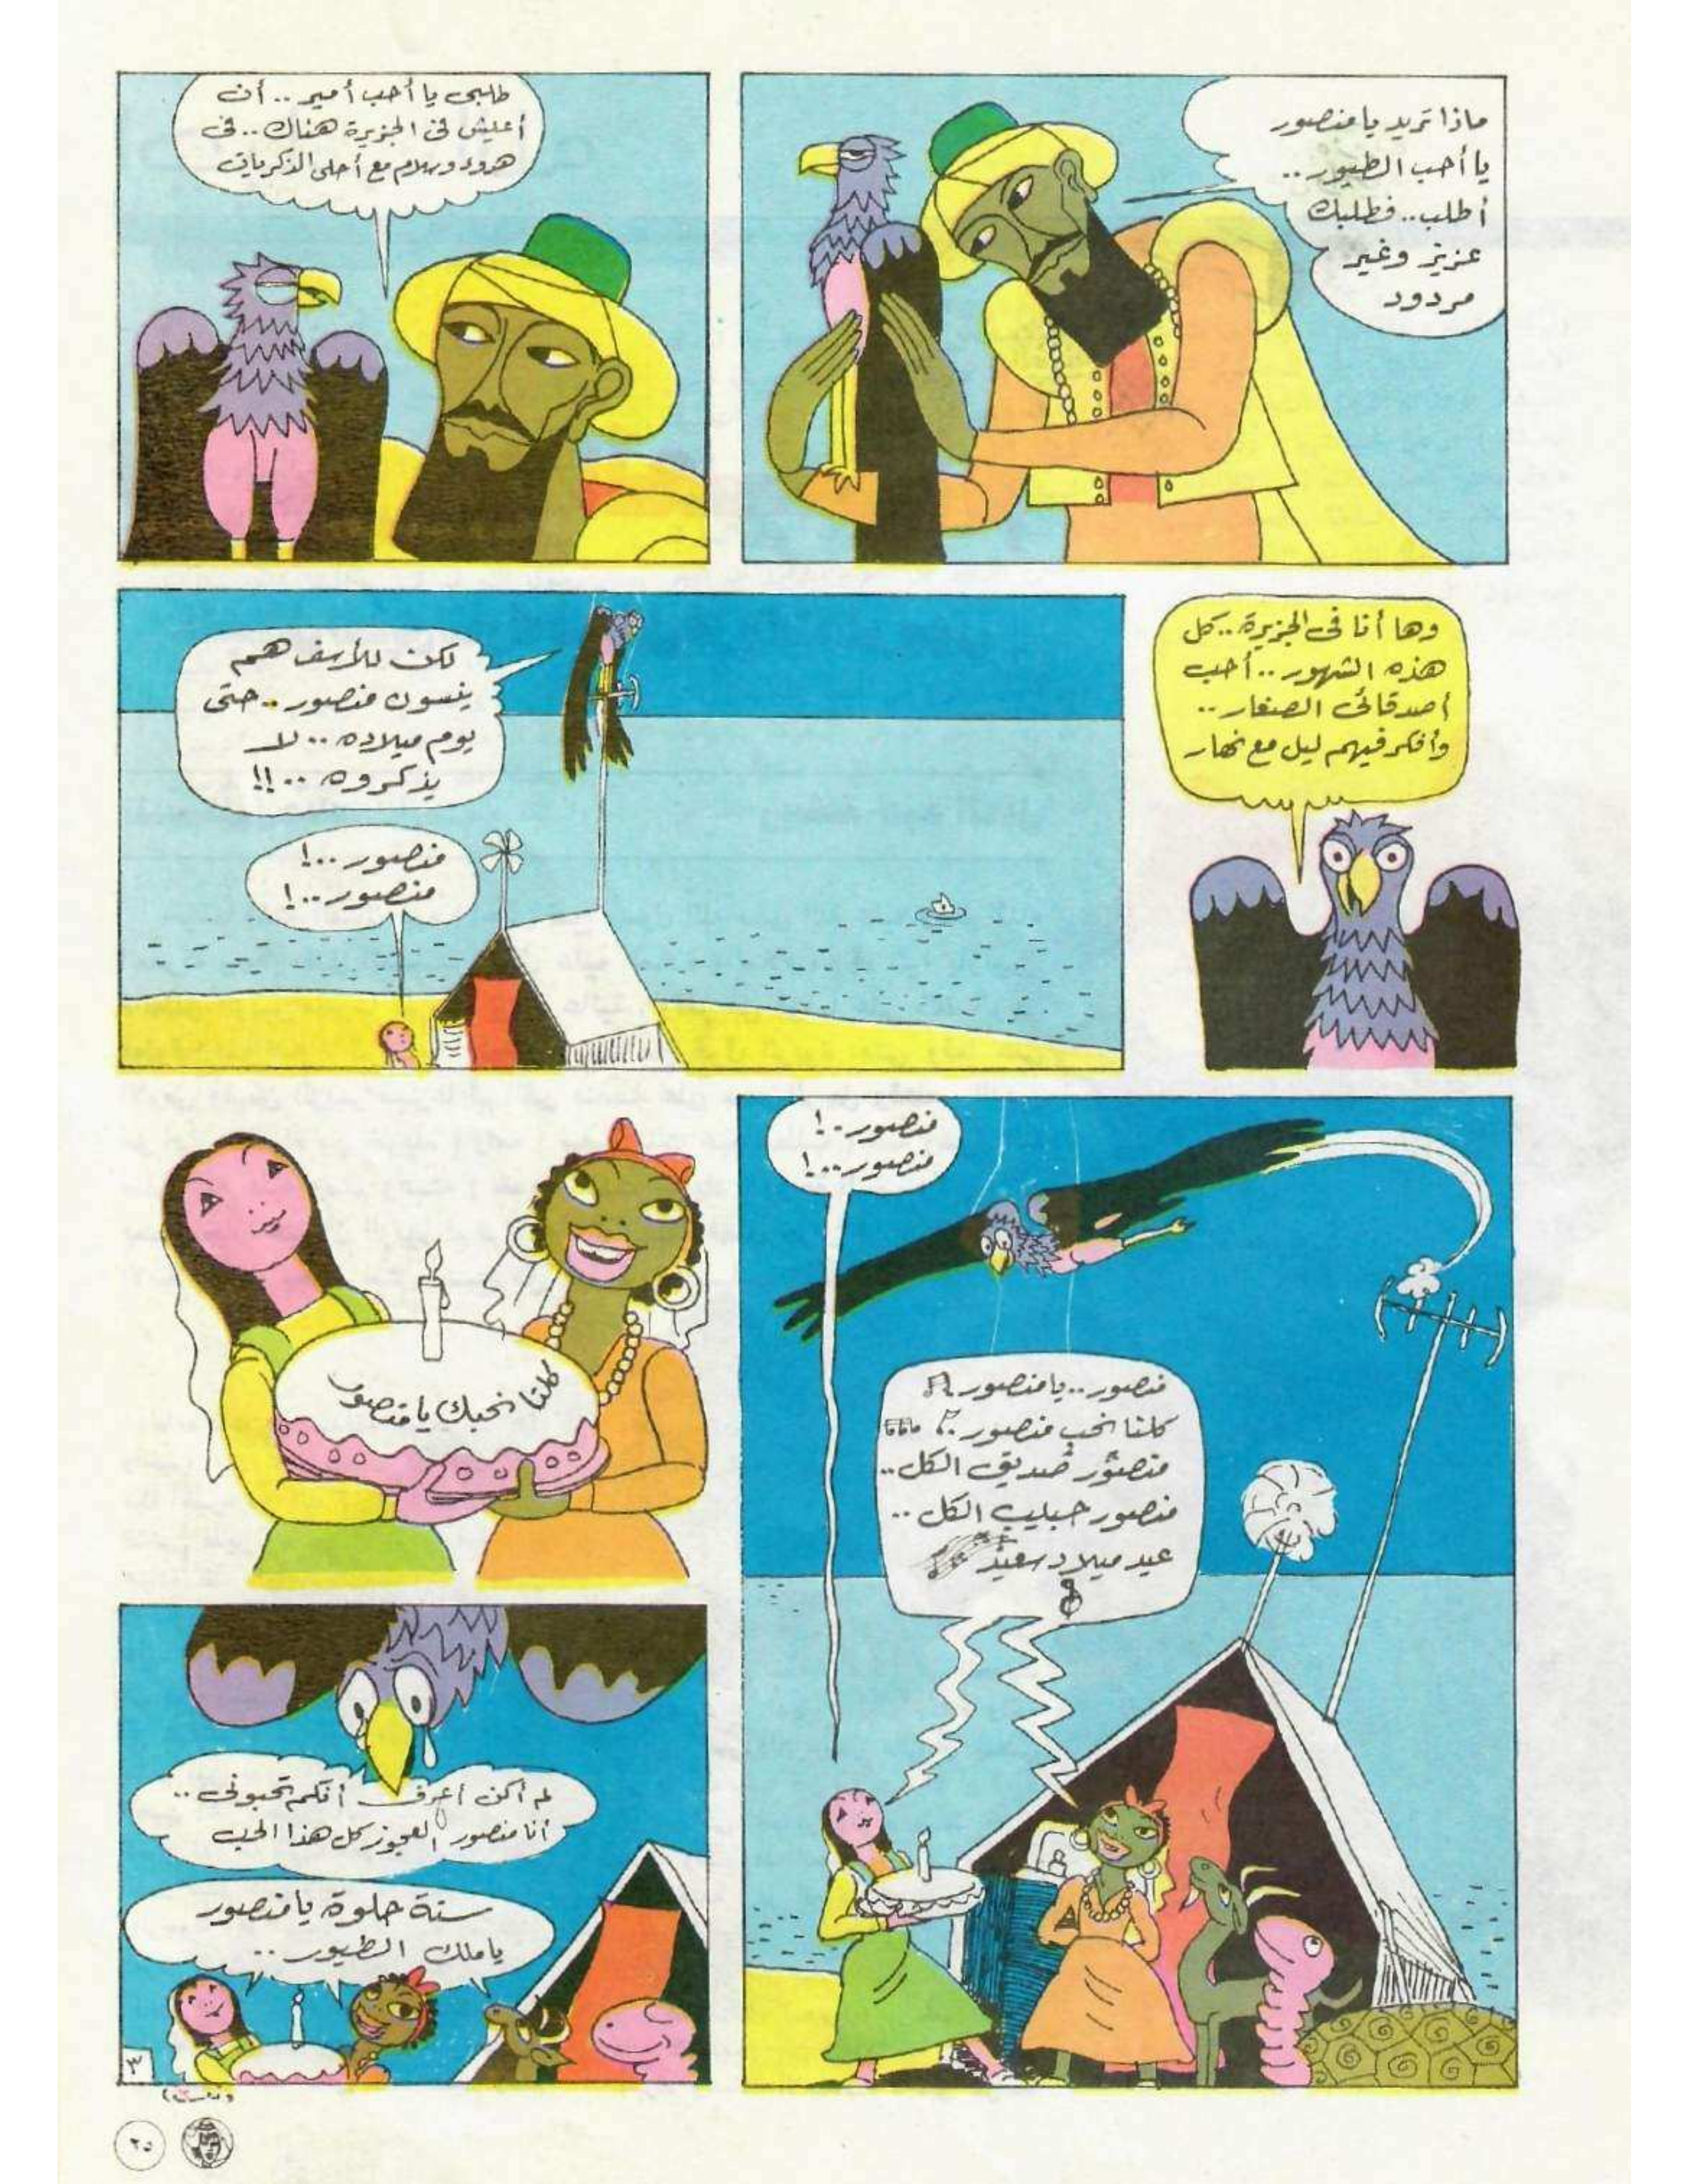 ماذا تريد يا منصور
يا أحب الطيور ..
أطلب .. فطلبك
عزيز وغير
مردود
طلبى يا أحب أمير .. أن
أعيش فى الجزيرة هناك .. فى
هدوء وسلام مع أحلى الذكريات
وها أنا فى الجزيرة .. كل
هذه الشهور .. أحب
أصدقائى الصغار ..
وأفكر فيهم ليل مع نهار
لكن للأسف هم
ينسون منصور .. حتى
يوم ميلاده .. لا
يذكروه .. !!
منصور .. !
منصور .. !
منصور .. !
منصور .. !
منصور .. يا منصور
كلنا نحب منصور
منصور صديق الكل ..
منصور حبيب الكل ..
عيد ميلاد سعيد
كلنا نحبك يا منصور
لم أكن أعرف أنكم تحبونى ..
أنا منصور العجوز كل هذا الحب
سنة حلوة يا منصور
يا ملك الطيور ..
٣
٢٥